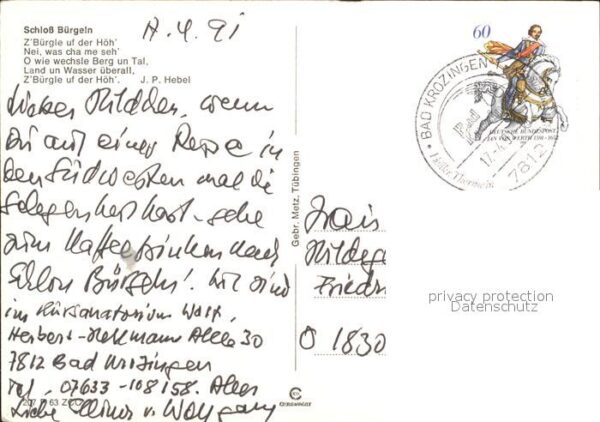 Schloß Bürgeln
Z'Bürgle uf der Höh'
Nei, was cha me seh'
O wie wechsle Berg un Tal,
Land un Wasser überall,
Z'Bürgle uf der Höh'. J. P. Hebel
17.4.91
Liebes Hildden, wenn
Du auf einer Reise in
den Südwesten mal die
Gelegenheit hast - gehe
zum Kaffeetrinken nach
Schloß Bürgeln! Wir sind
im Kursanatorium
Herbert-Hellmann Allee 30
7812 Bad Krozingen
Tel. 07633-108158. Alles
Liebe Elinor u. Wolfgang
207 63 ZCO
Gebr. Metz, Tübingen
Cekade
60
BAD KROZINGEN
Bad
17.4.
7812
Heiße Thermen
DEUTSCHE BUNDESPOST
JAN VON WERTH 1591-1652
Frau
Hildeg
Friedr
O 1830
privacy protection
Datenschutz